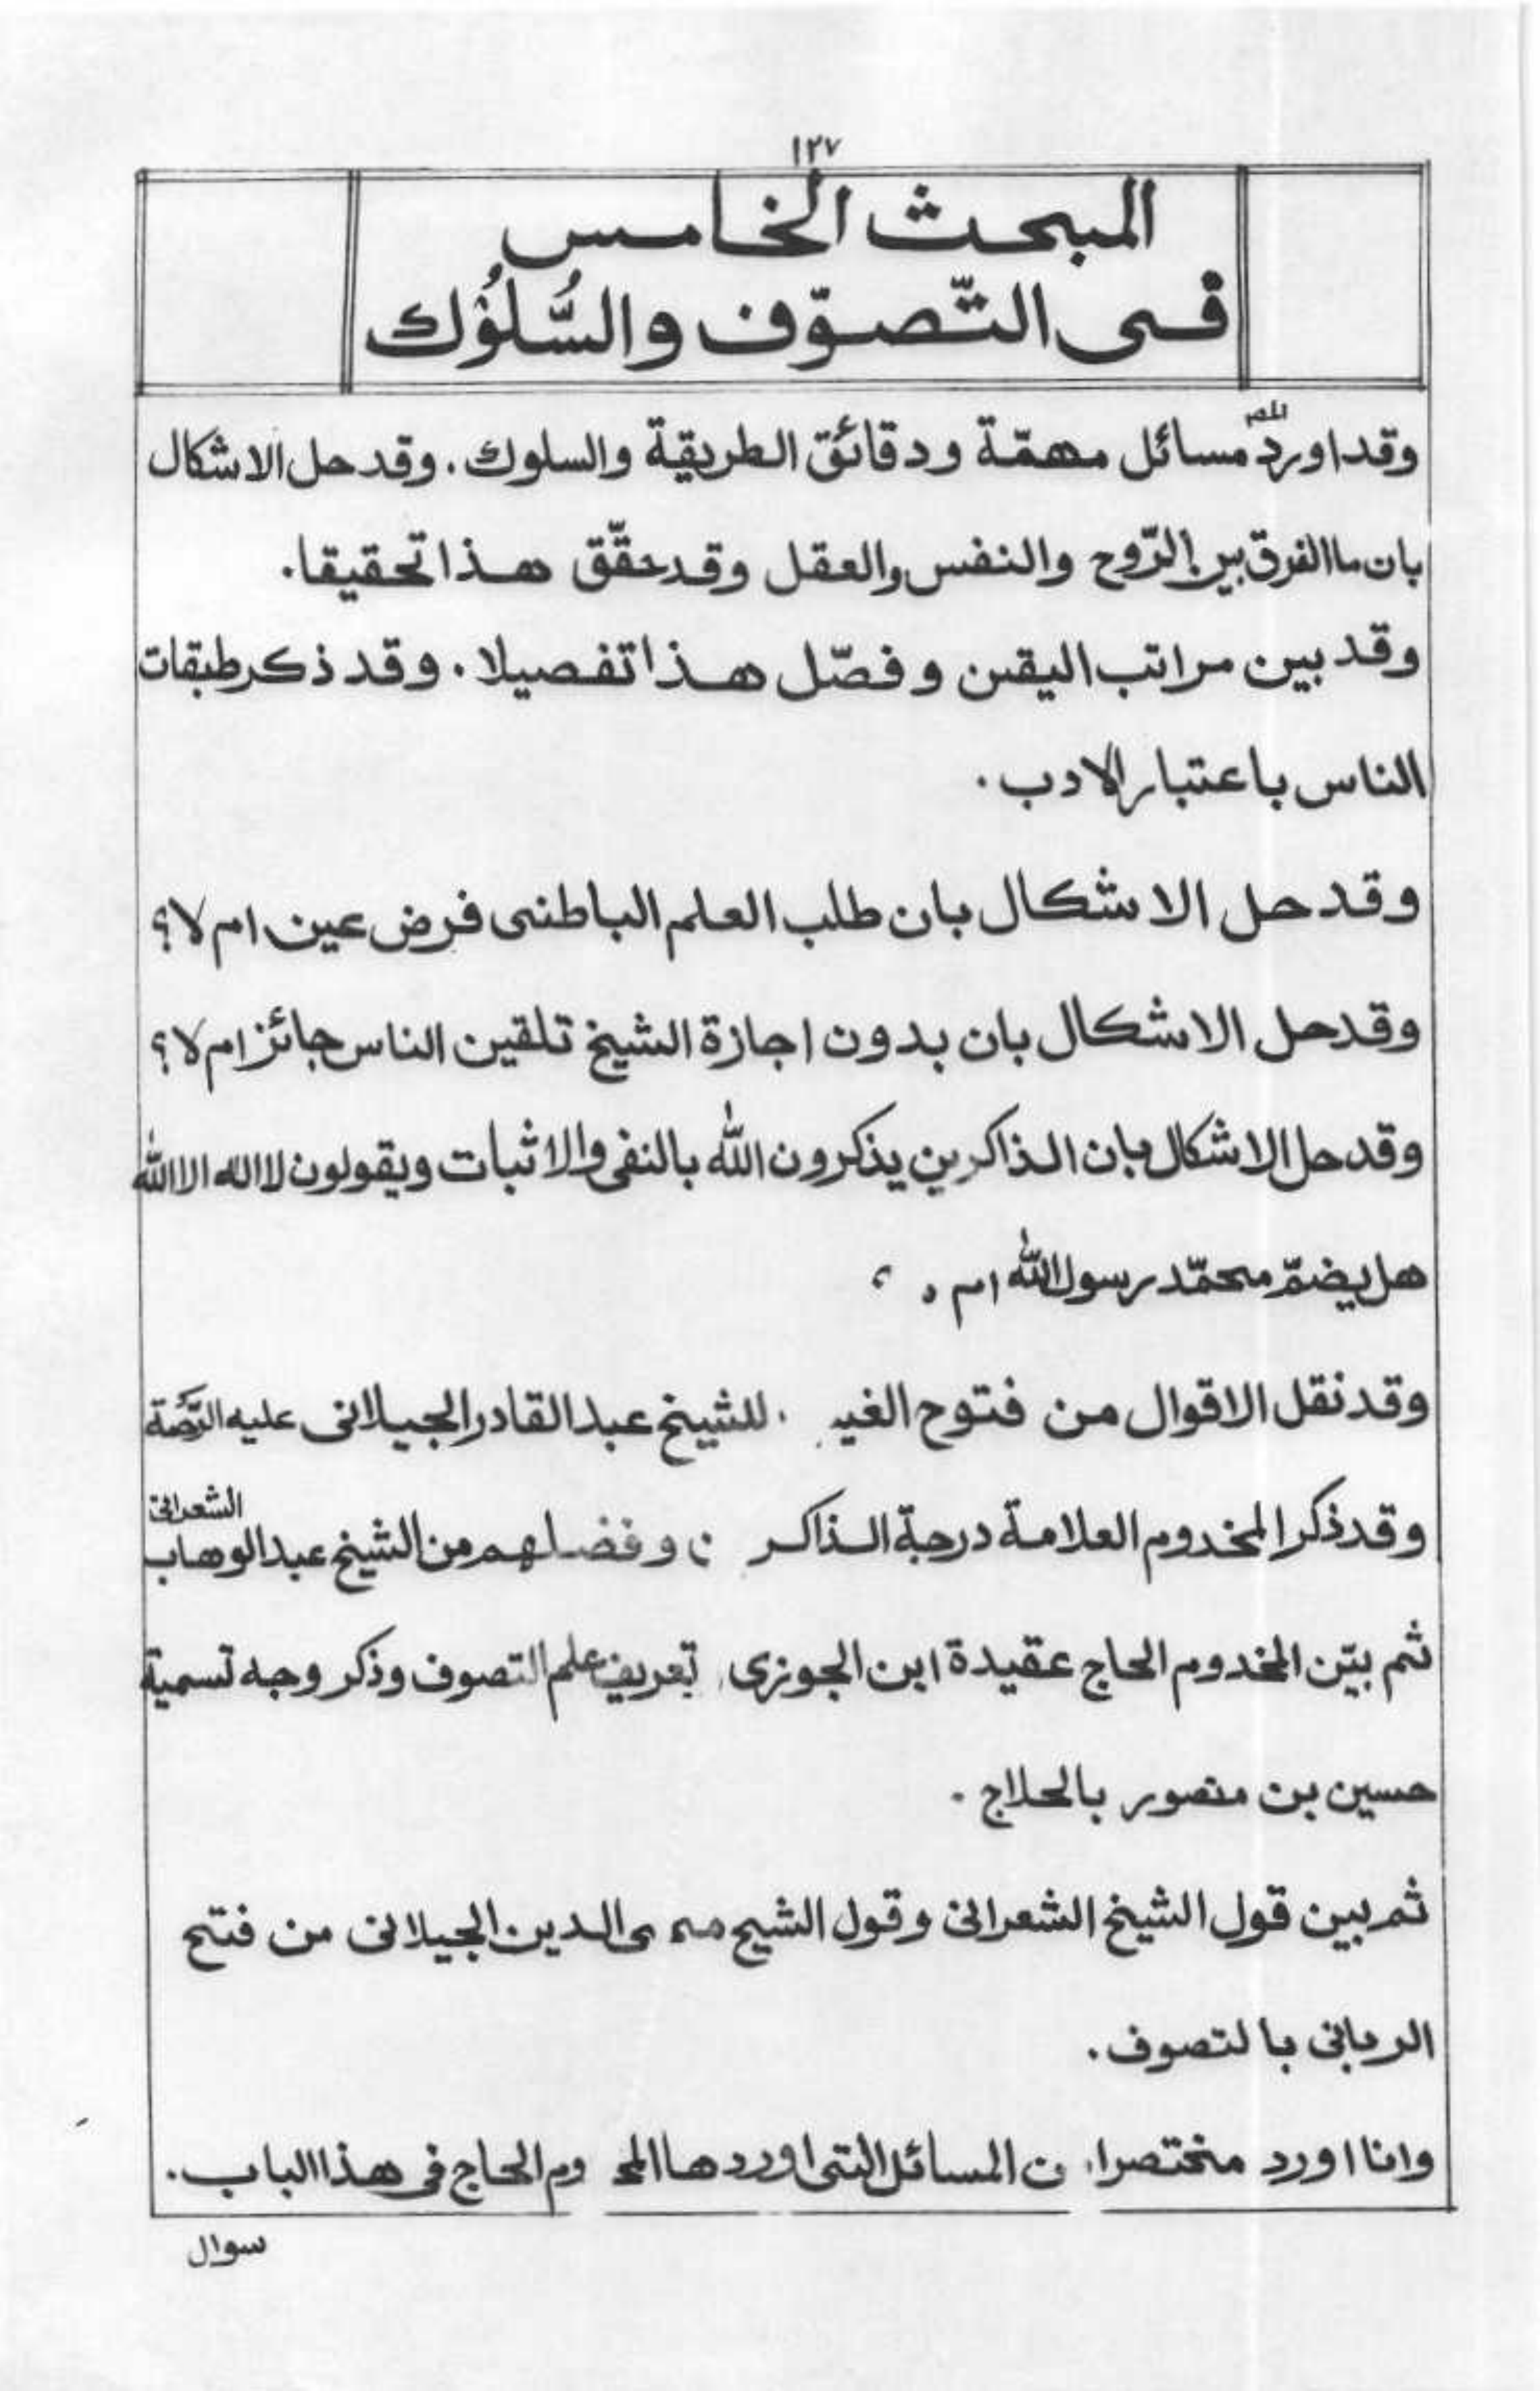 ١٢٧
المبحث الخامس
فى التّصوّف والسُّلوُك
وقد اورد مسائل مهمّة ودقائق الطريقة والسلوك. وقد حل الاشكال
بان ما الفرق بين الرّوح والنفس والعقل وقد حقّق هذا تحقيقا.
وقد بين مراتب اليقين وفصّل هذا تفصيلا. وقد ذكر طبقات
الناس باعتبار الادب.
وقد حل الاشكال بان طلب العلم الباطنى فرض عين ام لا؟
وقد حل الاشكال بان بدون اجازة الشيخ تلقين الناس جائز ام لا؟
وقد حل الاشكال بان الذاكرين يذكرون الله بالنفى والاثبات ويقولون لا اله الا الله
هل يضمّ محمّد رسول الله ام ؟
وقد نقل الاقوال من فتوح الغيب للشيخ عبد القادر الجيلانى عليه الرّحمة
وقد ذكر المخدوم العلامة درجة الذاكرين وفضلهم من الشيخ عبد الوهاب الشعرانى
ثم بيّن المخدوم الحاج عقيدة ابن الجوزى تعريف علم التصوف وذكر وجه تسمية
حسين بن منصور بالحلاج.
ثم بين قول الشيخ الشعرانى وقول الشيخ محى الدين الجيلانى من فتح
الربانى بالتصوف.
وانا اورد مختصرا من المسائل التى اوردها المخدوم الحاج فى هذا الباب.
سوال